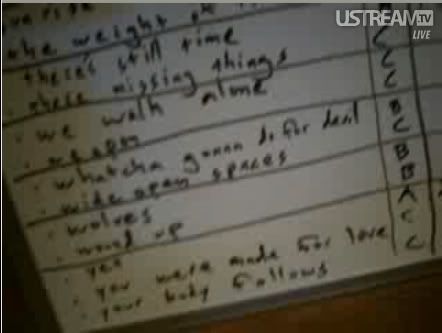 USTREAM TV
LIVE
the weight of
there's still time C
these missing things C
we walk alone C
weapon B
whatcha gonna do for devil C
wide open spaces B
wolves B
word up A
yes C
you were made for love C
your body follows